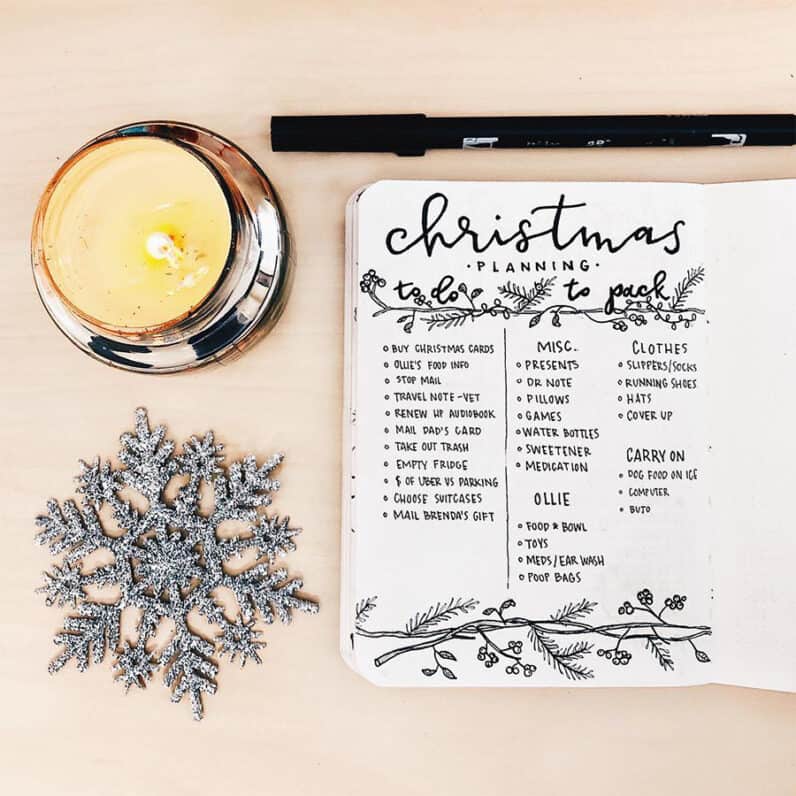 christmas
·PLANNING·
to do
BUY CHRISTMAS CARDS
OLLIE'S FOOD INFO
STOP MAIL
TRAVEL NOTE-VET
RENEW HP AUDIOBOOK
MAIL DAD'S CARD
TAKE OUT TRASH
EMPTY FRIDGE
$ OF UBER VS PARKING
CHOOSE SUITCASES
MAIL BRENDA'S GIFT
to pack
MISC.
PRESENTS
DR NOTE
PILLOWS
GAMES
WATER BOTTLES
SWEETENER
MEDICATION
OLLIE
FOOD & BOWL
TOYS
MEDS/EAR WASH
POOP BAGS
CLOTHES
SLIPPERS/SOCKS
RUNNING SHOES
HATS
COVER UP
CARRY ON
DOG FOOD ON ICE
COMPUTER
BUJO